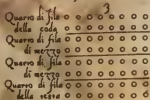 3
Quarta di fila
della coda
Quarta di fila
di mezzo
Quarta di fila
di mezzo
Quarta di fila
della testa